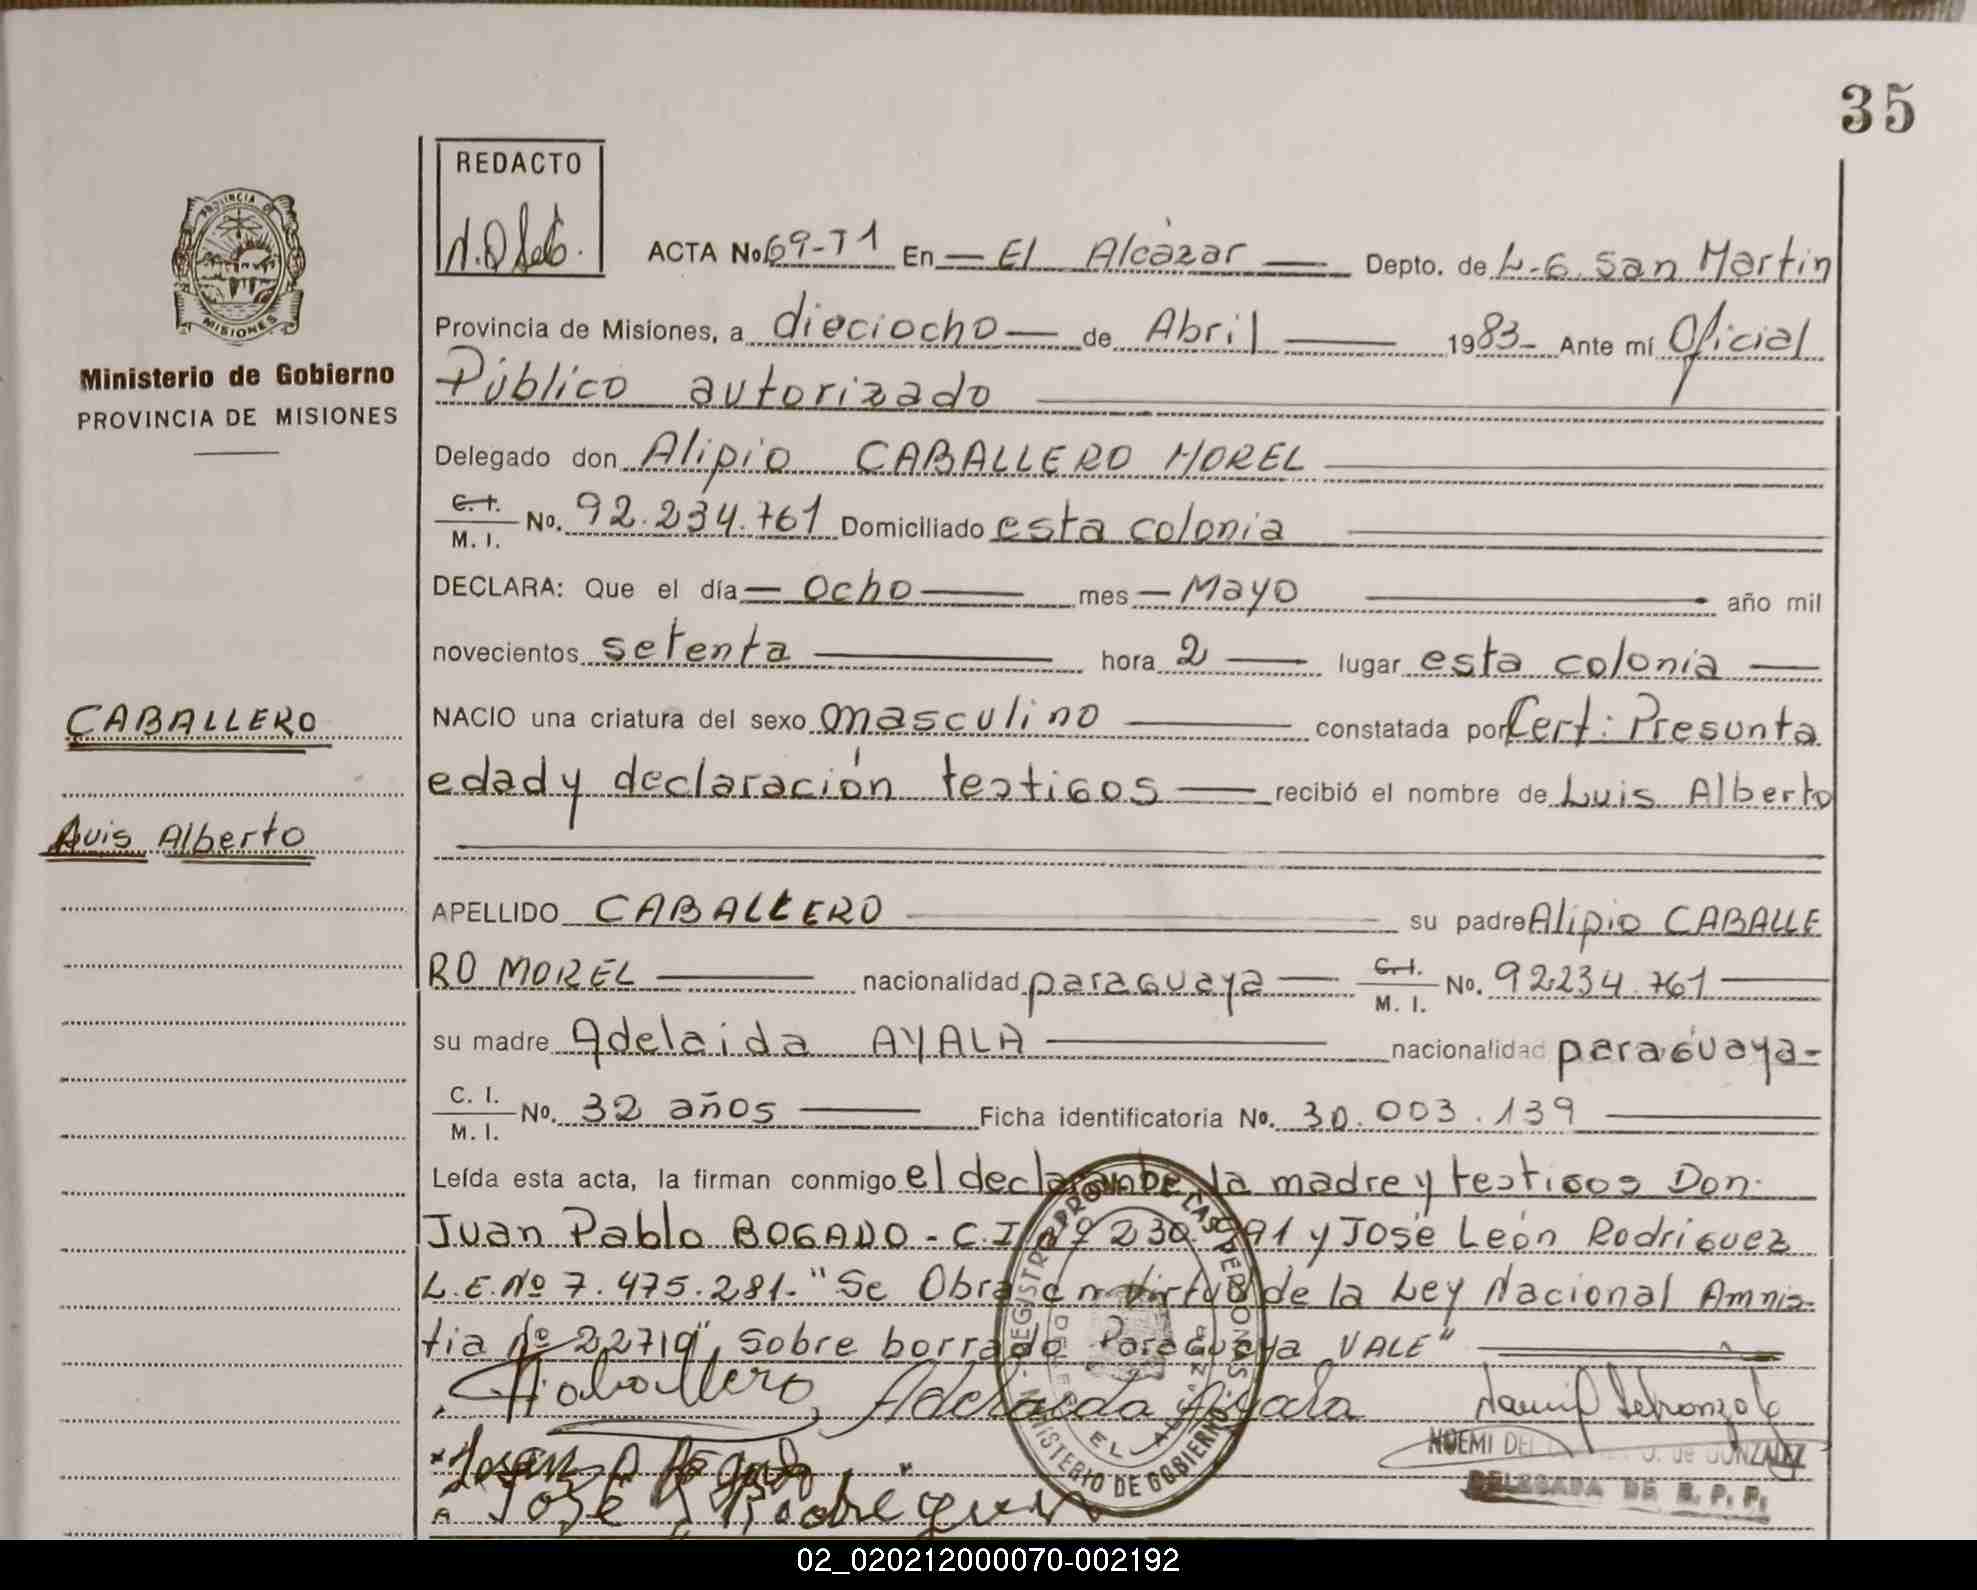 35
REDACTO
PROVINCIA DE
MISIONES
ACTA No. 69-T1 En — El Alcázar — Depto. de L.G. San Martin
Provincia de Misiones, a dieciocho — de Abril — 1983- Ante mí Oficial
Ministerio de Gobierno
PROVINCIA DE MISIONES
Público autorizado
Delegado don Alipio CABALLERO MOREL
C. I.
M. I. No. 92.234.761 Domiciliado esta colonia
DECLARA: Que el día — ocho — mes — Mayo — año mil
novecientos setenta — hora 2 — lugar esta colonia —
CABALLERO
NACIO una criatura del sexo masculino — constatada por Cert: Presunta
edad y declaración testigos — recibió el nombre de Luis Alberto
Luis Alberto
APELLIDO CABALLERO — su padre Alipio CABALLE
RO MOREL — nacionalidad paraguaya — C. I.
M. I. No. 92.234.761 —
su madre Adelaida AYALA — nacionalidad paraguaya-
C. I.
M. I. No. 32 años — Ficha identificatoria No. 30.003.139 —
Leída esta acta, la firman conmigo el declarante, la madre y testigos Don
Juan Pablo BOGADO - C.I. Nº 230. 91 y José León Rodriguez
L.E. Nº 7.475.281.- "Se Obra en virtud de la Ley Nacional Amnis-
tia Nº 22719", Sobre borrado Paraguaya VALE"
Caballero Adelaida Ayala
NOEMI DEL de GONZALEZ
DELEGADA DE R. P. P.
José Rodriguez
MINISTERIO DE GOBIERNO
REGISTRO PROV. DE LAS PERSONAS
EL ALCAZAR
02_020212000070-002192